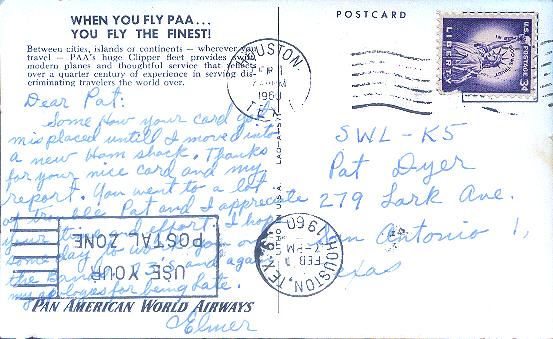 WHEN YOU FLY PAA...
YOU FLY THE FINEST!
Between cities, islands or continents — wherever you
travel — PAA's huge Clipper fleet provides swift,
modern planes and thoughtful service that reflects
over a quarter century of experience in serving dis-
criminating travelers the world over.
Dear Pat:
Some How your card got
misplaced untill I moved into
a new Ham shack. Thanks
for your nice card and my
report. You went to a lot
of trouble Pat and I appreciate
your effort. I hope
some day to
the Band and again
my apologies for being late.
Elmer
PAN AMERICAN WORLD AIRWAYS
POSTCARD
HOUSTON,
1960
TEX
U.S. POSTAGE 3¢
LIBERTY
IN GOD WE TRUST
SWL-K5
Pat Dyer
279 Lark Ave.
San Antonio 1,
Texas
LITHO IN U.S.A.
USE YOUR
POSTAL ZONE
HOUSTON, TEX.
FEB 1
PM
1960